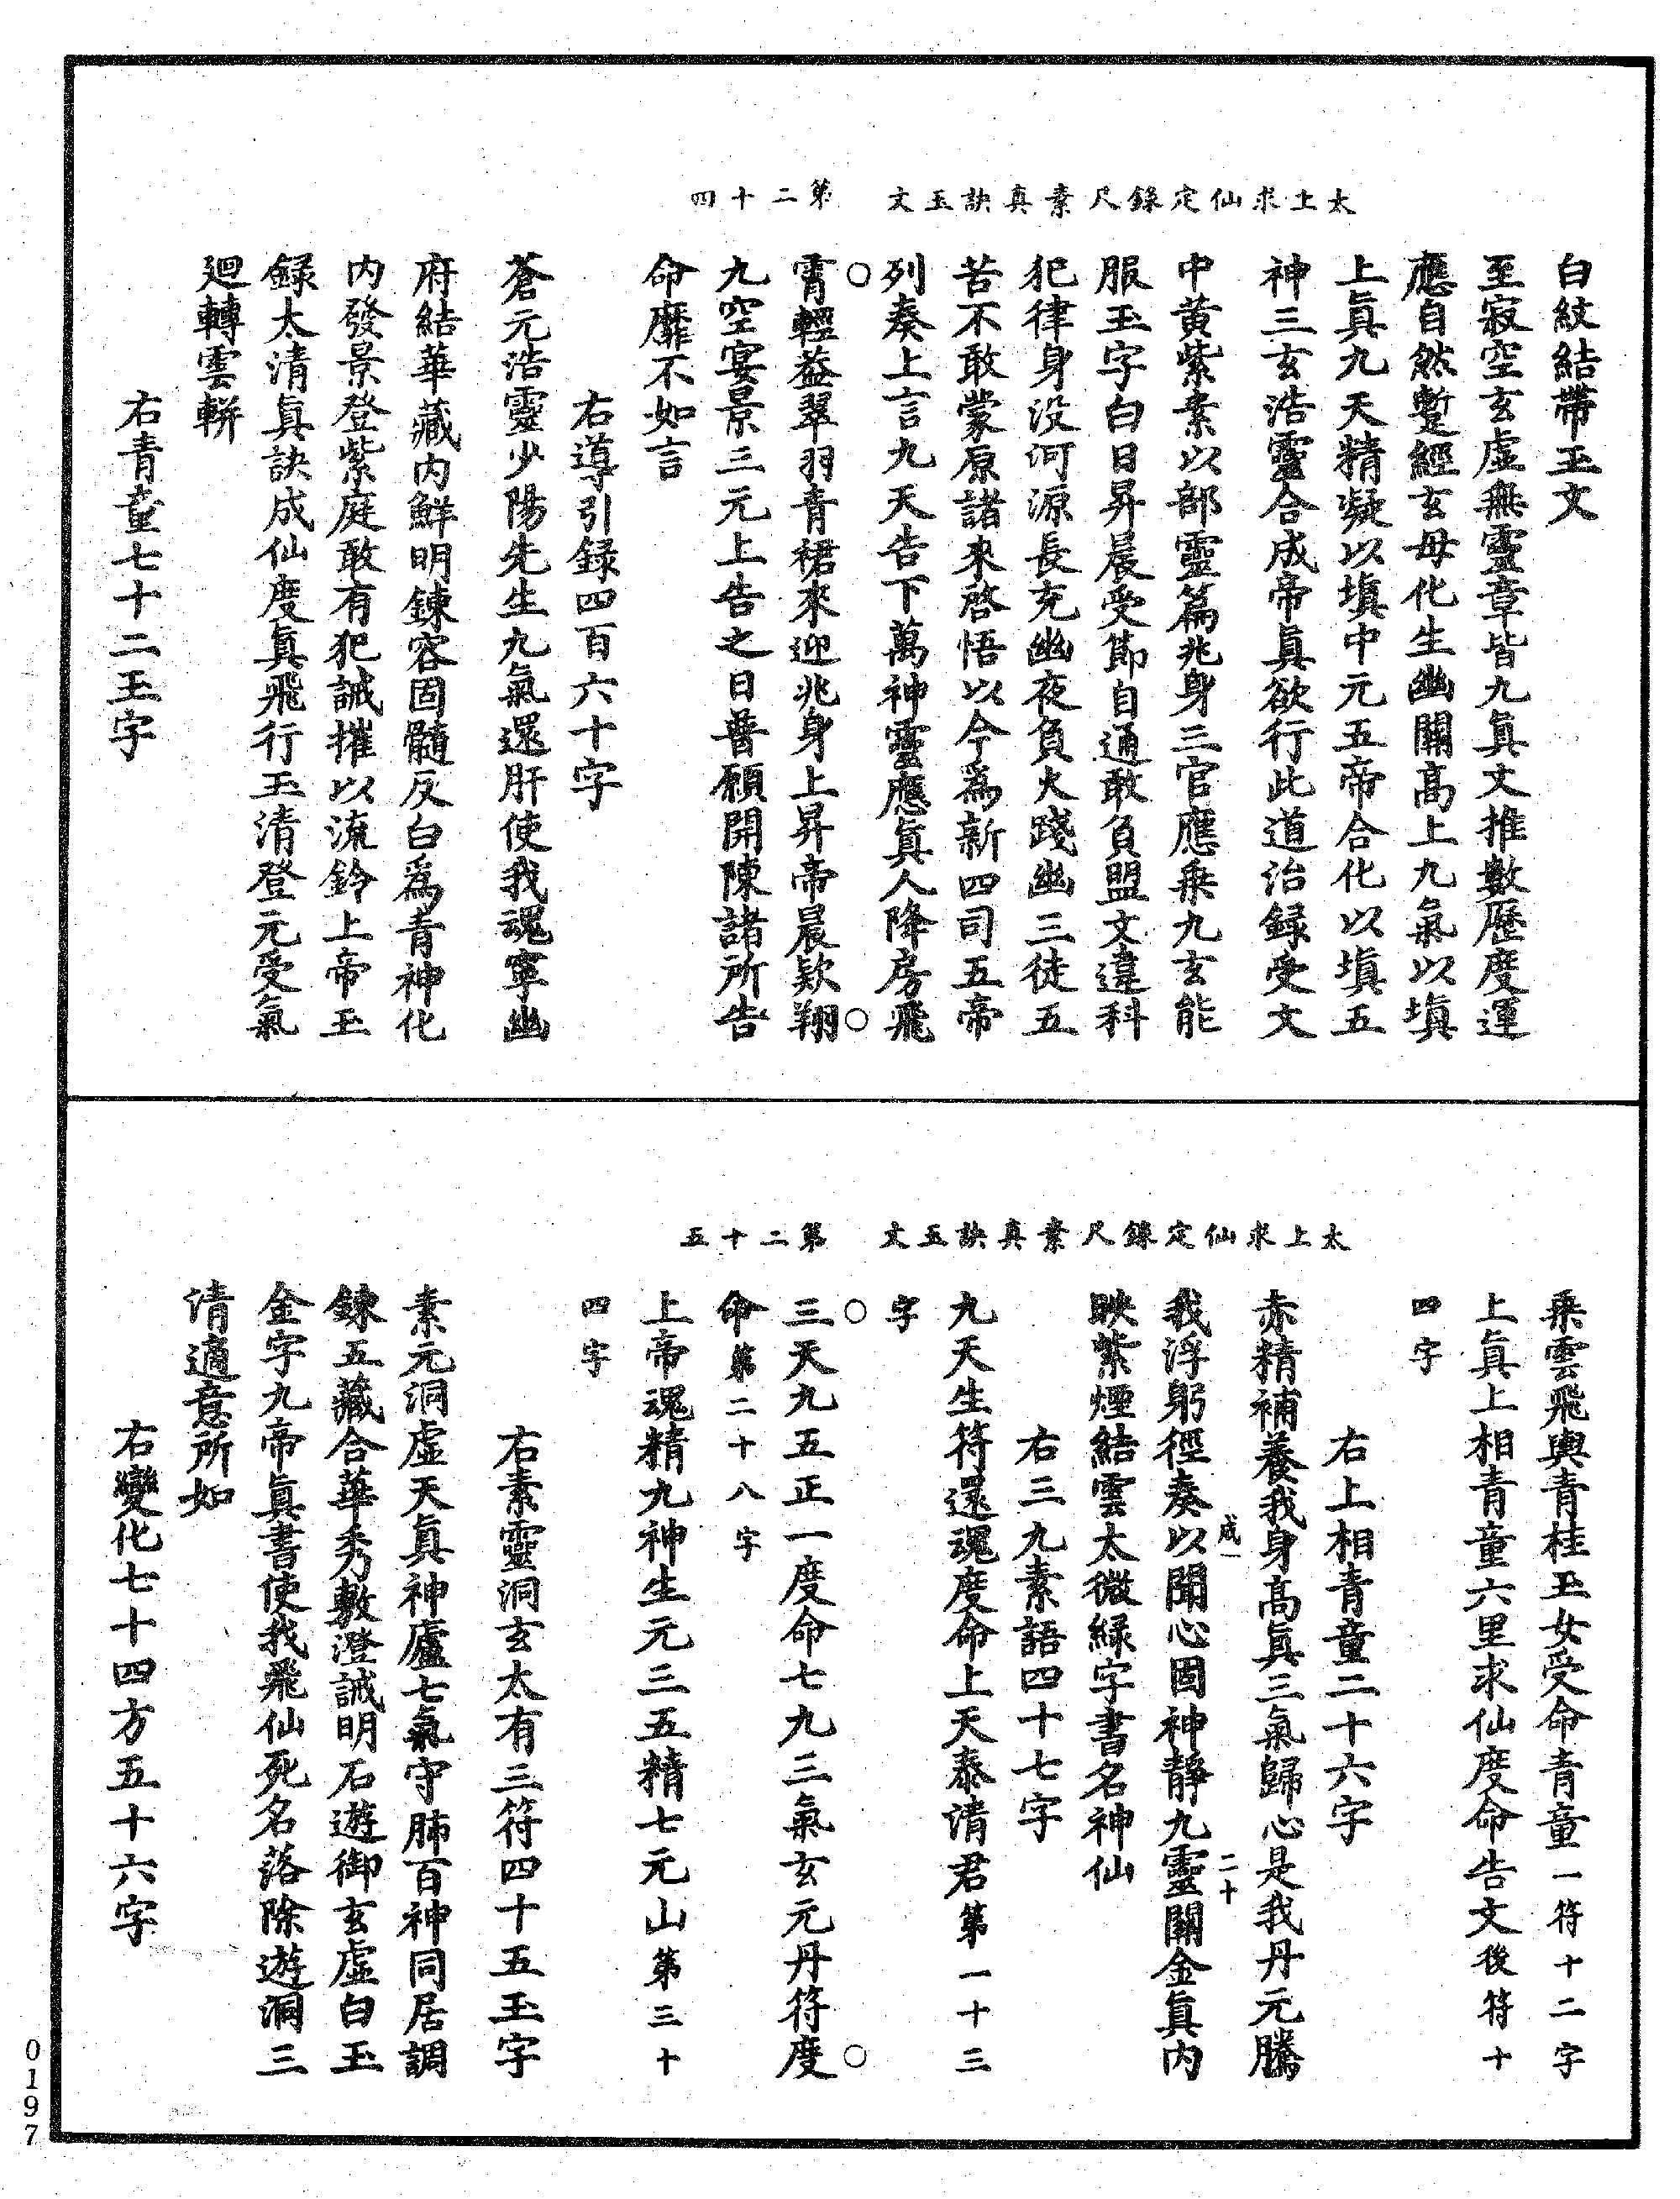 太上求仙定錄尺素真訣玉文　第二十四
白紋結帶玉文
至寂空玄虛無靈章皆九真文推數歷度運
應自然蹔經玄母化生幽關高上九氣以填
上真九天精凝以填中元五帝合化以填五
神三玄浩靈合成帝真欲行此道治録受文
中黄紫素以部靈篇兆身三官應乗九玄能
服玉字白日昇晨受節自通敢負盟文違科
犯律身没河源長充幽夜負火踐幽三徒五
苦不敢蒙原諸来啓悟以今為新四司五帝
列奏上言九天告下萬神靈應真人降房飛
○霄輕益翠羽青裙來迎兆身上昇帝晨欵翔○
九空宴景三元上告之日普願開陳諸所告
命靡不如言
右導引録四百六十字
蒼元浩靈少陽先生九氣還肝使我魂寧幽
府結華藏内鮮明鍊容固髓反白為青神化
内發景登紫庭敢有犯誡摧以流鈴上帝玉
録太清真訣成仙度真飛行玉清登元受氣
廻轉雲軿
右青童七十二玉字
太上求仙定錄尺素真訣玉文　第二十五
乗雲飛輿青桂玉女受命青童一符十二字
上真上相青童六里求仙度命告文後符十
四字
右上相青童二十六字
赤精補養我身高真三氣歸心是我丹元騰
咸一　二十
我浮躬徑奏以聞心固神靜九靈關金真内
映紫煙結雲太微緑字書名神仙
右三九素語四十七字
九天生符還魂度命上天泰清君第一十三
字
○三天九五正一度命七九三氣玄元丹符度○
命第二十八字
上帝魂精九神生元三五精七元山第三十
四字
右素靈洞玄太有三符四十五玉字
素元洞虛天真神廬七氣守肺百神同居調
鍊五藏合華秀敷澄誡明石遊御玄虛白玉
金字九帝真書使我飛仙死名落除遊洞三
清適意所如
右變化七十四方五十六字
0197